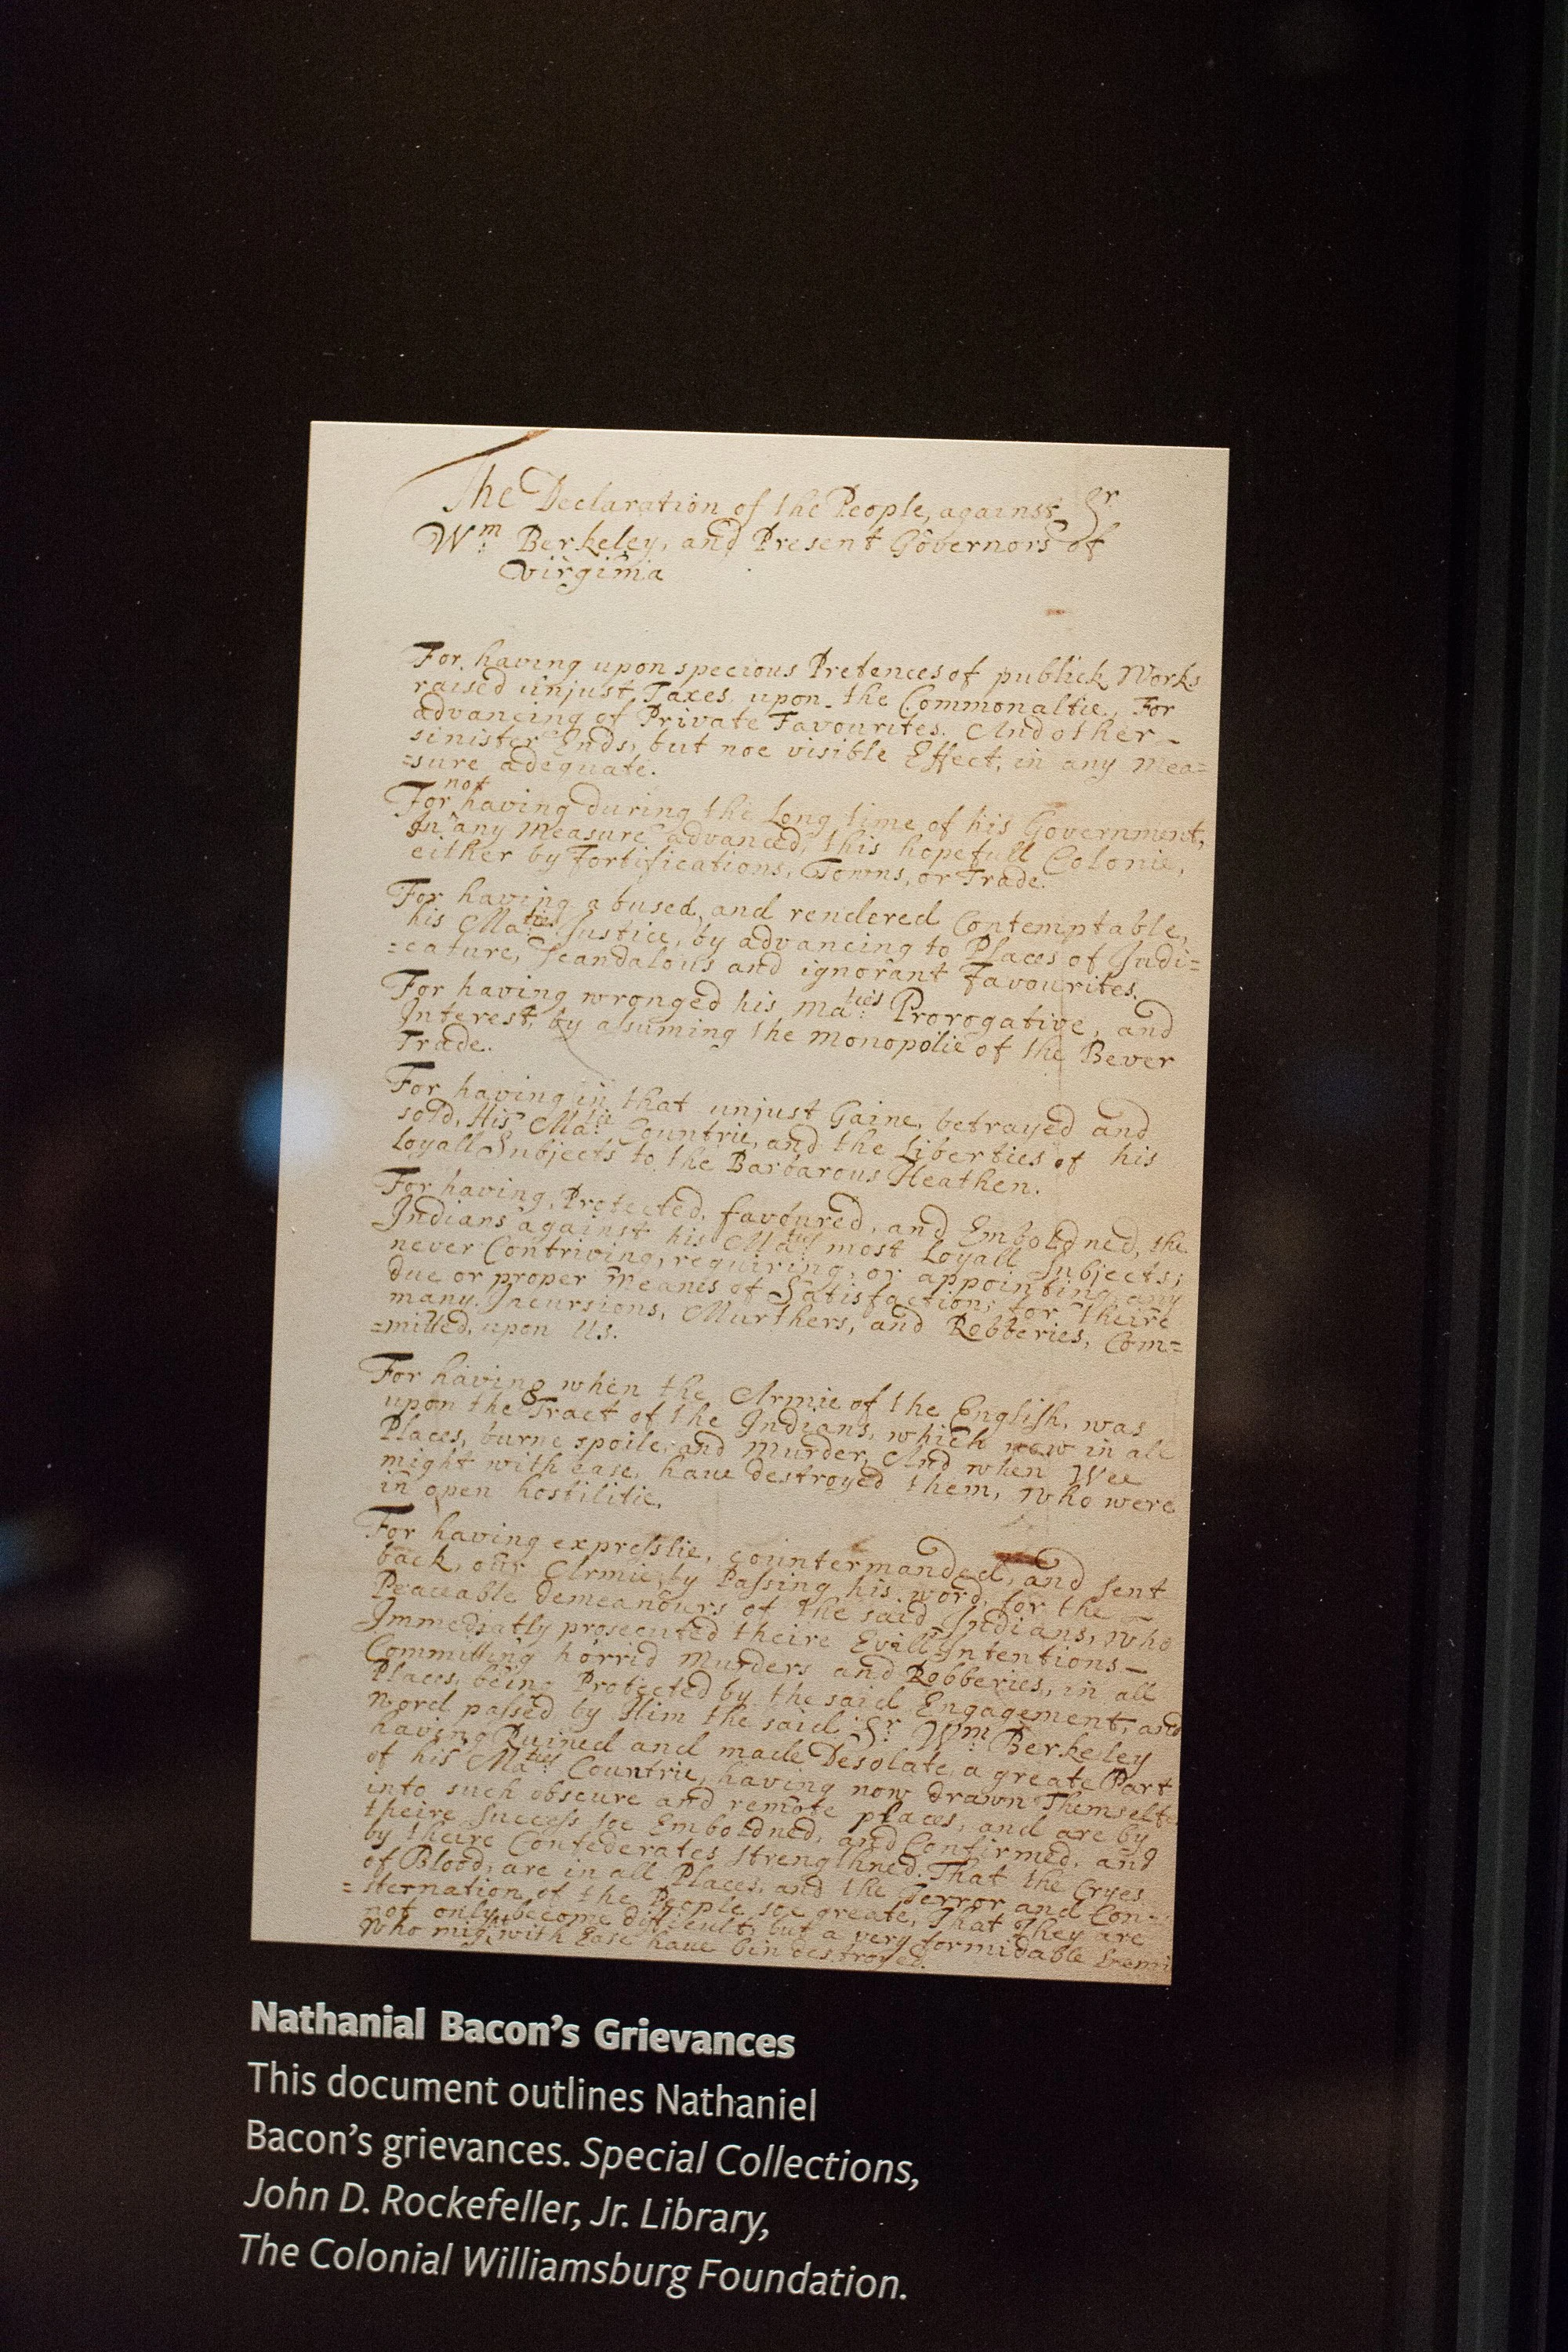 The Declaration of the People, against Sr
Wm: Berkeley, and Present Governors of
Virginia
For having upon specious Pretences of publick Works
raised unjust Taxes, upon the Commonaltie, For
advancing of Private Favourites. And other -
sinister Ends, but noe visible Effect, in any Mea=
=sure adequate.
not
For having during the Long time of his Government,
In any measure advanced, this hopefull Colonie,
either by Fortifications, Towns, or Trade.
For having abused, and rendered Contemptable,
his Maties Justice, by advancing to Places of Judi=
=cature, Scandalous and ignorant favourites.
For having wronged his Ma:ties Prorogative, and
Interest, by asuming the monopolie of the Bever
Trade.
For having in that unjust Gaine, betrayed and
sold, His Ma:tie Countrie, and the Liberties of his
Loyall Subjects to the Barbarous Heathen.
For having, Protected, favoured, and Emboldned, the
Indians against his Ma:ties most Loyall Subjects;
never Contriving, requiring, or appointing any
due or proper Meanes of Satisfaction; for theire
many Incursions, Murthers, and Robberies, Com=
=mitted, upon Us.
For having when the Armie of the English, was
upon the Tract of the Indians, which now in all
Places, burne spoile, and Murder, And when Wee
might with ease, haue destroyed them, who were
in open hostilitie.
For having expresslie, countermanded, and sent
back, our Armie, by Passing his word, for the -
Peaceable demeanours of the said Indians, who
Immediatly prosecuted theire Evill Intentions -
Committing horrid Murders and Robberies, in all
Places, being Protected by the said Engagement, and
word passed by Him the said Sr: Wm: Berkeley
having Ruined and made Desolate, a greate Part
of his Ma:ties Countrie, having now drawn Themselve
into such obscure and remote places, and are by
theire Success soe Emboldned, and Confirmed, and
by theire Confederates strengthned. That the Cryes
of Blood, are in all Places, and the Terror and Con=
=sternation of the People soe greate, That They are
not only become difficult, but a very formidable Enemi
Who might with Ease haue bin destroyed.
Nathanial Bacon's Grievances
This document outlines Nathaniel
Bacon's grievances. Special Collections,
John D. Rockefeller, Jr. Library,
The Colonial Williamsburg Foundation.